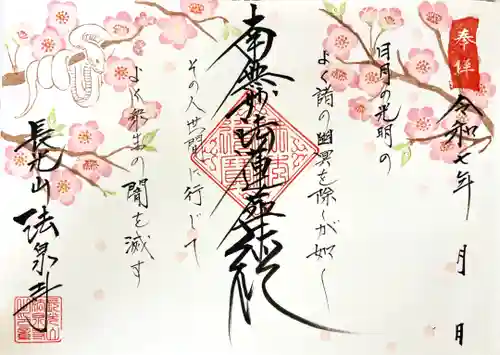 奉拝
令和七年 月 日
日月の光明の
よく諸の幽冥を除くが如く
南無妙法蓮華経
その人世間に行じて
よく衆生の闇を滅す
長光山
法泉寺